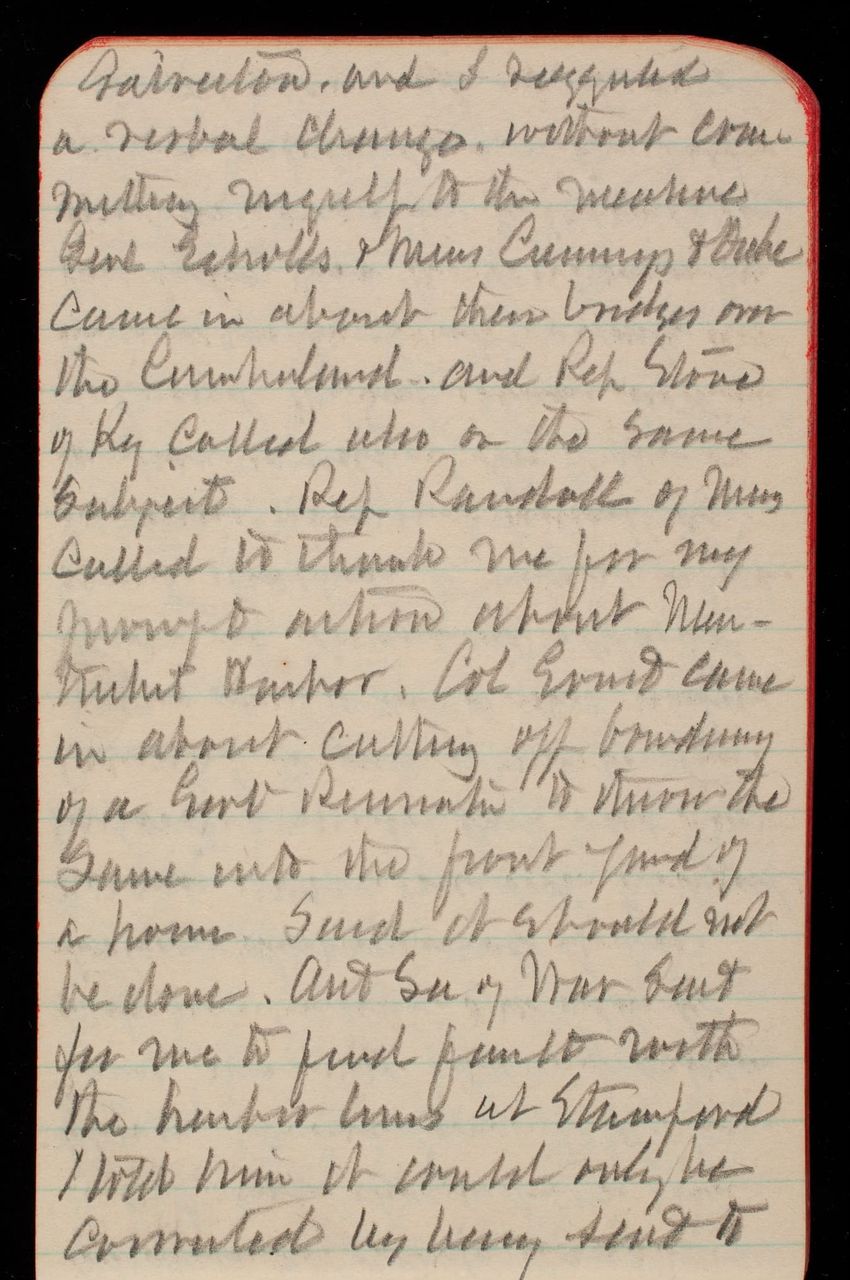 Galveston. and I suggested
a verbal change. without com
mitting myself to the measure
Genl Echolls & Messrs Cummings & Duke
came in about their bridges over
the Cumberland. and Rep Stone
of Ky called also on the same
subject. Rep Randall of Mass
called to thank me for my
prompt action about Nan-
tucket Harbor. Col Ernst came
in about cutting off boundary
of a Govt Reservatn to throw the
same into the front yard of
a home. Said it should not
be done. Asst Sec of War sent
for me to find fault with
the harbor lines at Stamford
I told him it could only be
corrected by being sent to